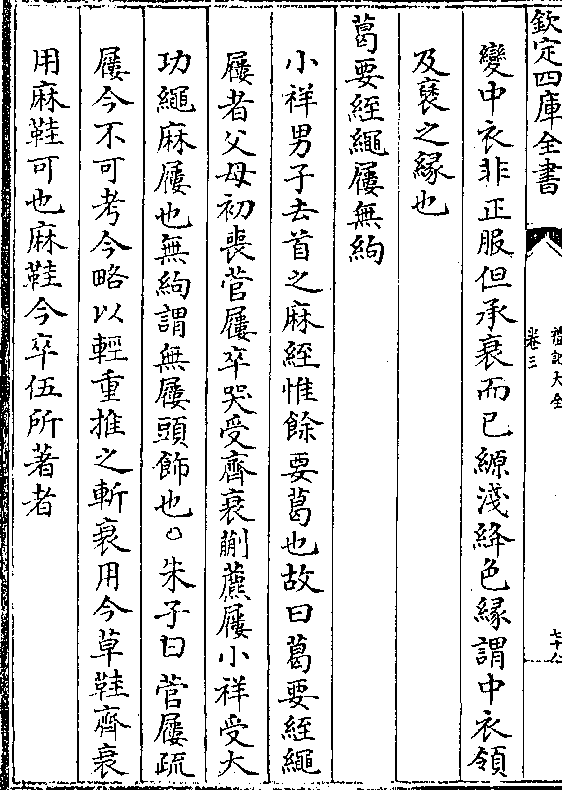 欽定四庫全書
禮記大全
卷三
變中衣非正服但承衰而已縓淺絳色緣謂中衣領
及褎之緣也
葛要絰繩屨無絇
小祥男子去首之麻絰惟餘要葛也故曰葛要絰繩
屨者父母初喪菅屨卒哭受齊衰蒯藨屨小祥受大
功繩麻屨也無絇謂無屨頭飾也○朱子曰菅屨疏
屨今不可考今略以輕重推之斬衰用今草鞋齊衰
用麻鞋可也麻鞋今卒伍所著者